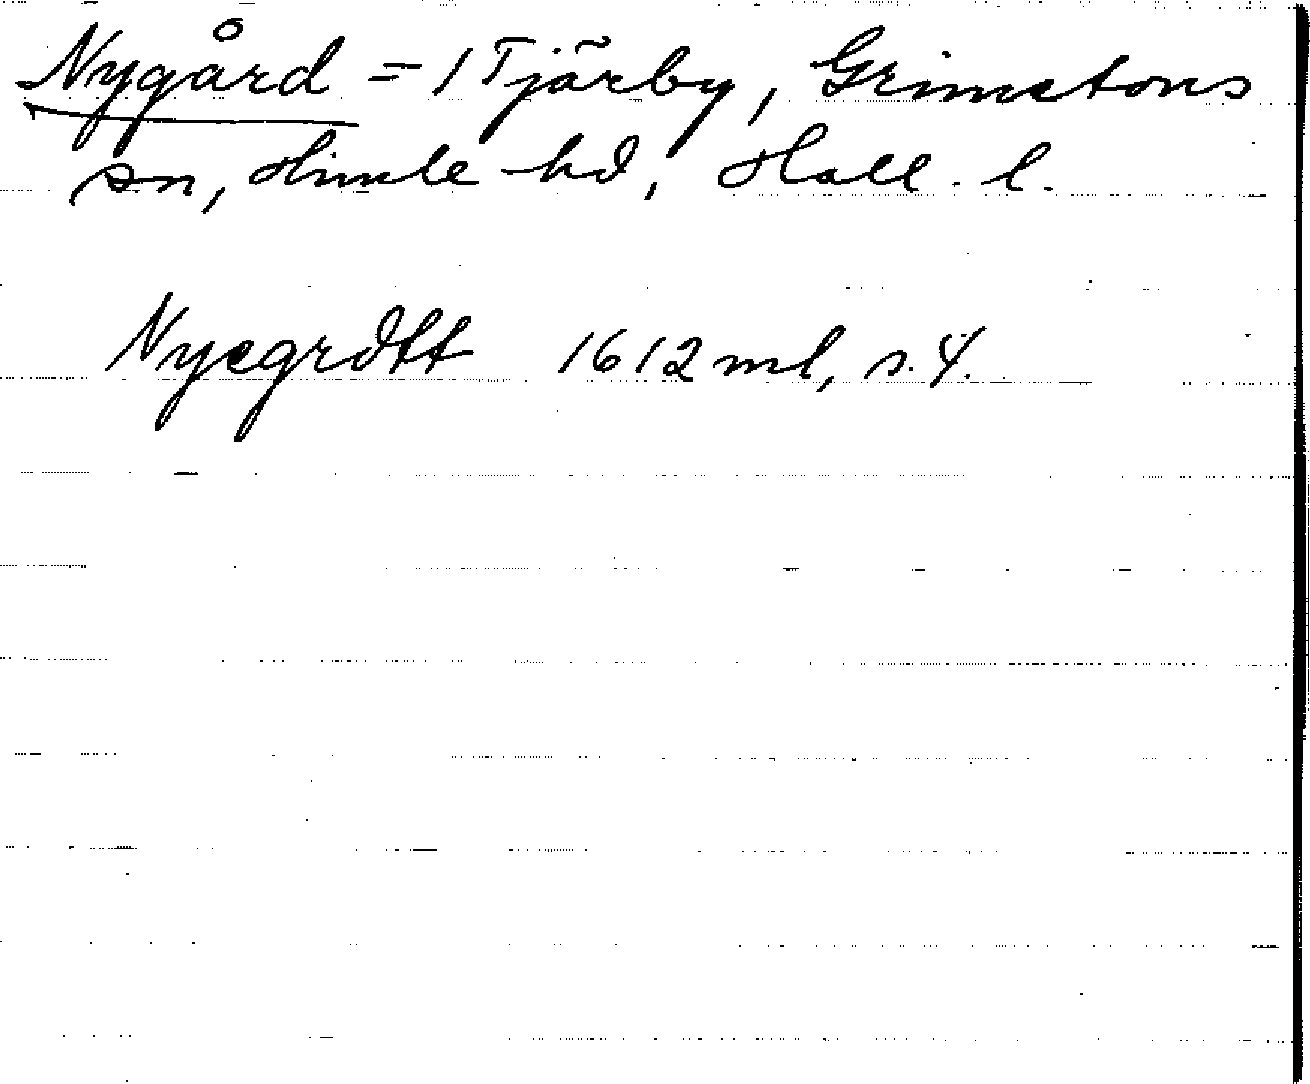 Nygård = 1 Tjärby, Grimetons
sn, Himle hd, Hall. l.
Nyegrdtt 1612 ml, s. 4.